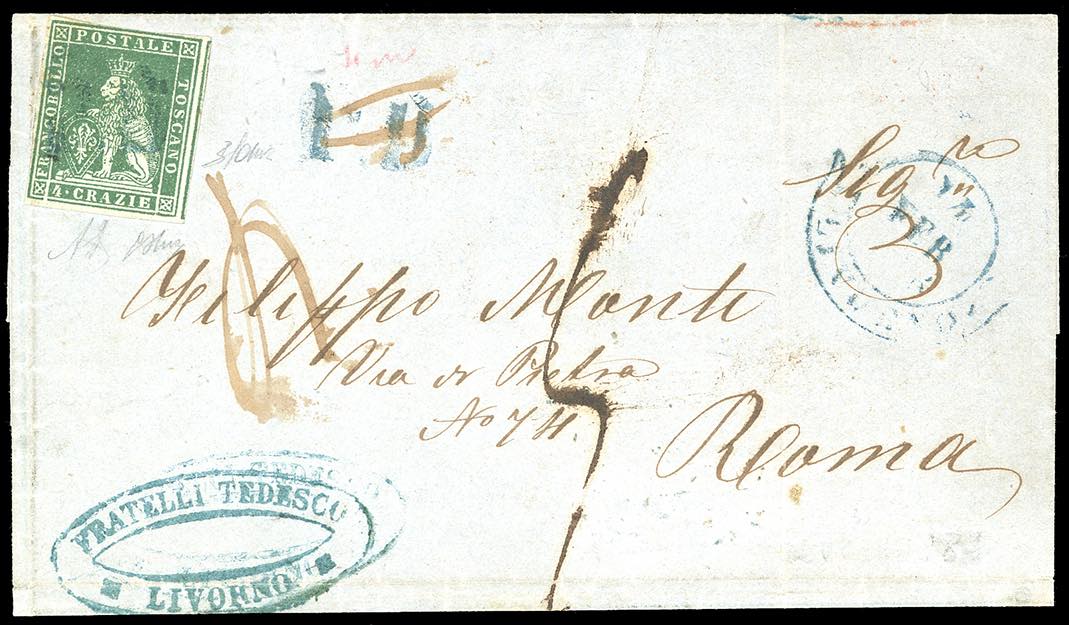 FRANCOBOLLO POSTALE TOSCANO
4 · CRAZIE
P.D
Sig.re
Filippo Monti
Via di Pietra
No 74.
Roma
LIVORNO
FEB
FRATELLI TEDESCO
LIVORNO